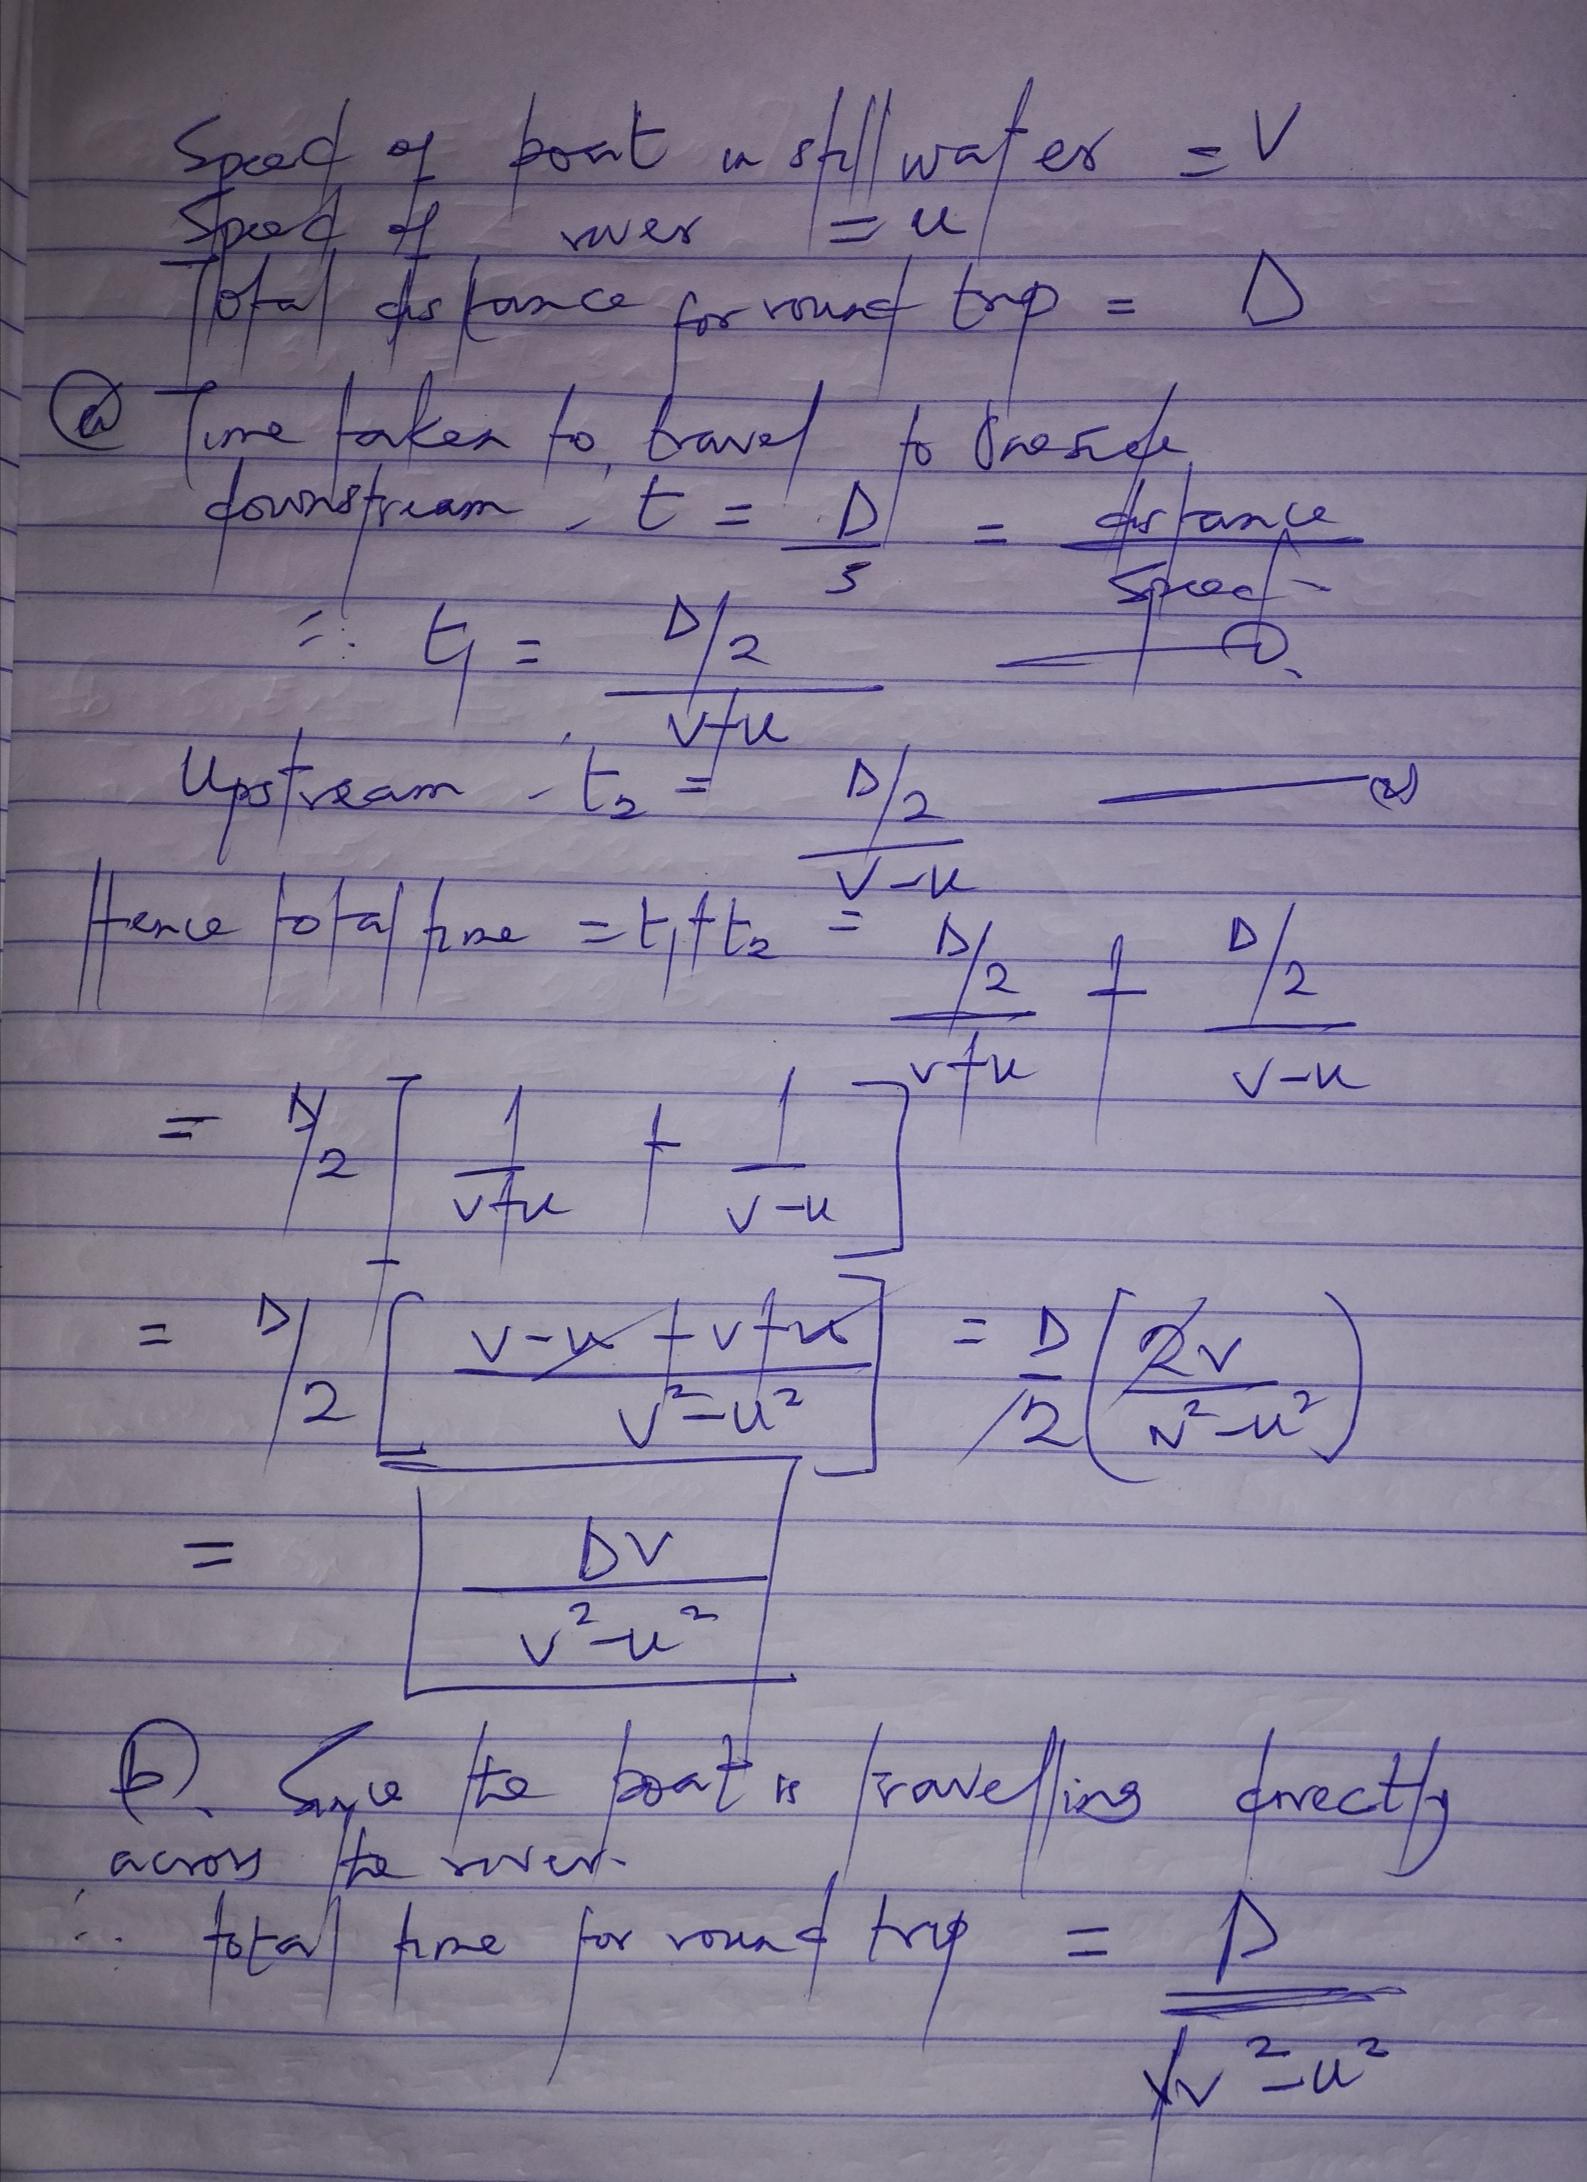 Speed of boat in still water = V
Speed of river = u
Total distance for round trip = D
(a) Time taken to travel to One side
downstream - t = D/s = distance/speed -
∴ t₁ = (D/2)/(v+u) —— (1)
Upstream - t₂ = (D/2)/(v-u) —— (2)
Hence total time = t₁+t₂ = (D/2)/(v+u) + (D/2)/(v-u)
= D/2 [ 1/(v+u) + 1/(v-u) ]
= D/2 [ (v-u+v+u)/(v²-u²) ] = D/2 ( 2v/(v²-u²) )
= Dv/(v²-u²)
(b). Since the boat is travelling directly
across the river.
∴ total time for round trip = D/√(v²-u²)